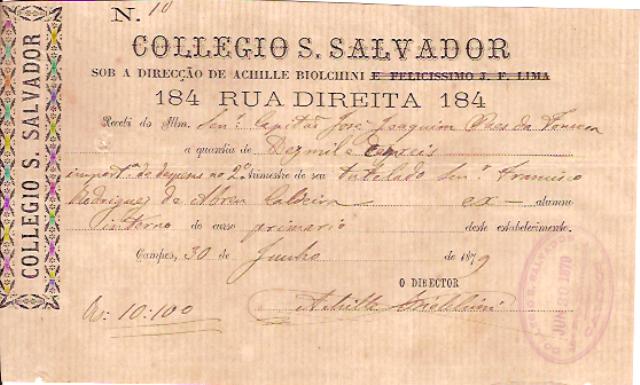 N. 10
COLLEGIO S. SALVADOR
COLLEGIO S. SALVADOR
SOB A DIRECÇÃO DE ACHILLE BIOLCHINI E FELICISSIMO J. F. LIMA
184 RUA DIREITA 184
Recebi do Illm. Sen.r Capitão José Joaquim Paes da Fonseca
a quantia de Dez mil e cem reis
import.a de despezas no 2.o trimestre de seu tutelado Sen.r Francisco
Rodrigues de Abreu Caldeira ex- alumno
interno do curso primario deste estabelecimento.
Campos, 30 de Junho de 1879
O DIRECTOR
Achille Biolchini
Rs: 10:100